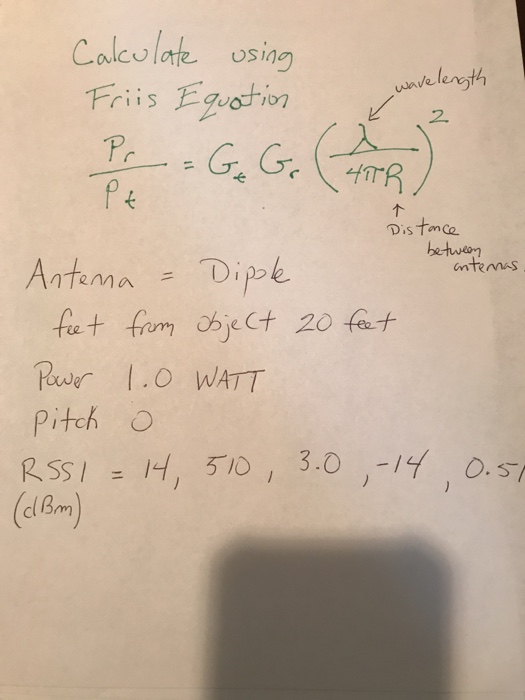 Calculate using
Friis Equation
wavelength
Pr / Pt = Gt Gr (λ / 4πR)²
Distance
between
antennas
Antenna = Dipole
feet from object 20 feet
Power 1.0 WATT
Pitch 0
RSSI = 14, 510, 3.0, -14, 0.51
(dBm)